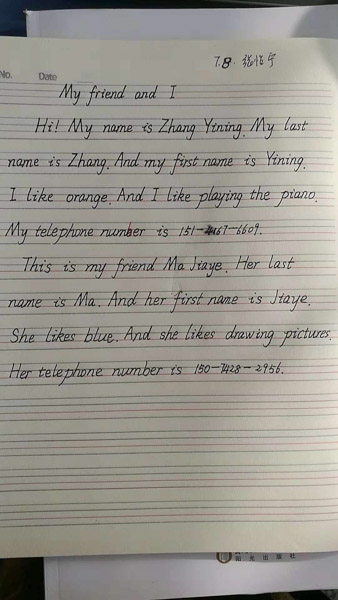 No. Date
7.8. 张怡宁
My friend and I
Hi! My name is Zhang Yining. My last
name is Zhang. And my first name is Yining.
I like orange. And I like playing the piano.
My telephone number is 151-4467-6609.
This is my friend Ma Jiaye. Her last
name is Ma. And her first name is Jiaye.
She likes blue. And she likes drawing pictures.
Her telephone number is 150-7428-2956.
阳光出版社